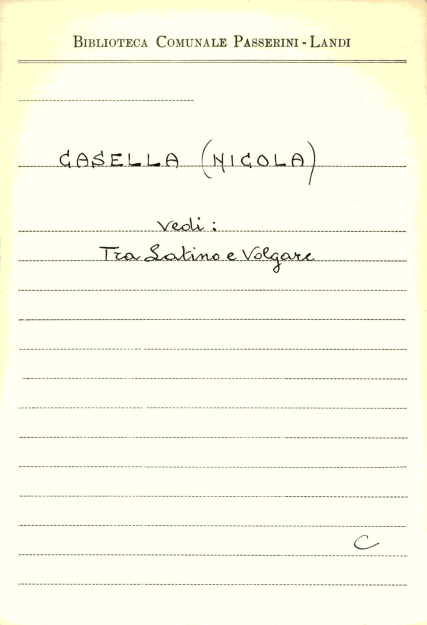 BIBLIOTECA COMUNALE PASSERINI - LANDI
CASELLA (NICOLA)
Vedi :
Tra Latino e Volgare
C